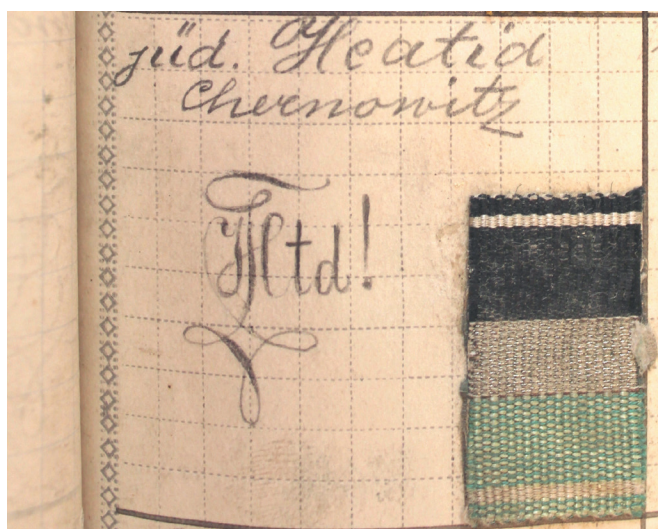 jüd. Heatid
Chernowitz
Htd!